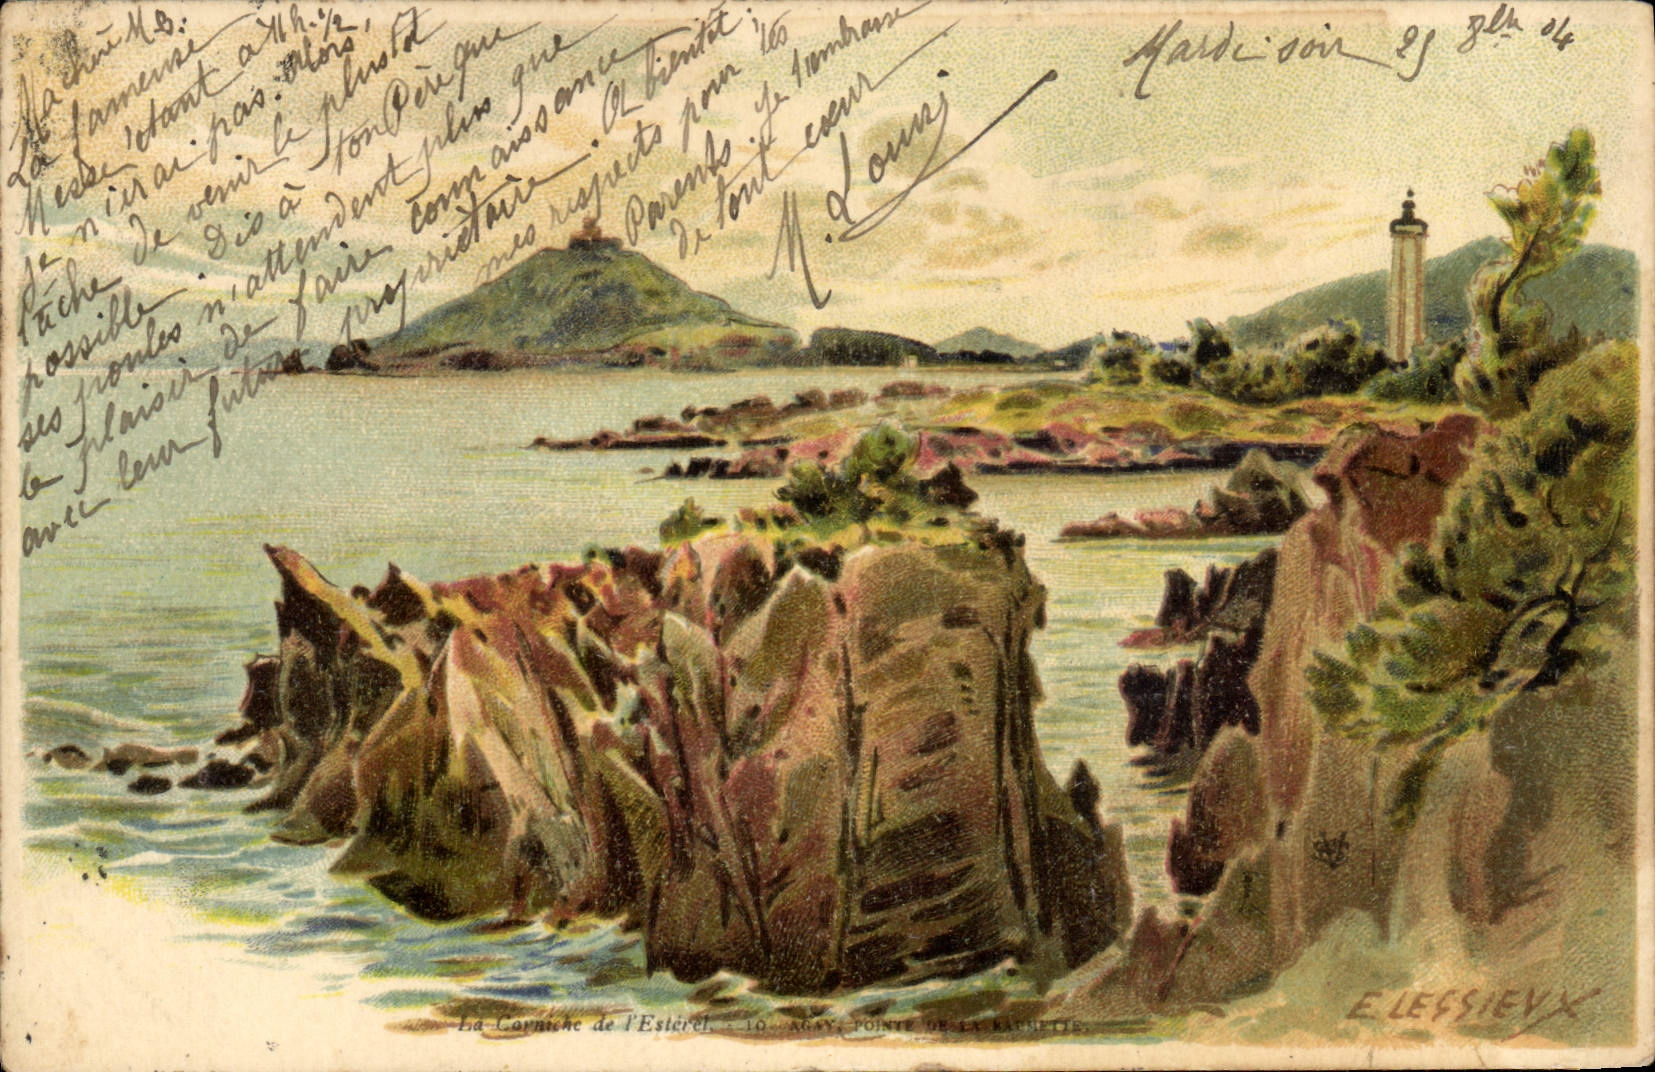 Mardi soir 25 8bre 04
Ma chère M.B:
La fameuse
Messe étant à 11 h. 1/2,
je n'irai pas. Alors,
tâche de venir le plus tôt
possible. Dis à ton Père que
ses poules n'attendent plus que
le plaisir de faire connaissance
avec leur futur propriétaire. Et bientôt;
mes respects pour tes
Parents. Je t'embrasse
de tout cœur
M. Louis
E. LESSIEUX
La Corniche de l'Estérel. - 10 AGAY, POINTE DE LA BAUMETTE.